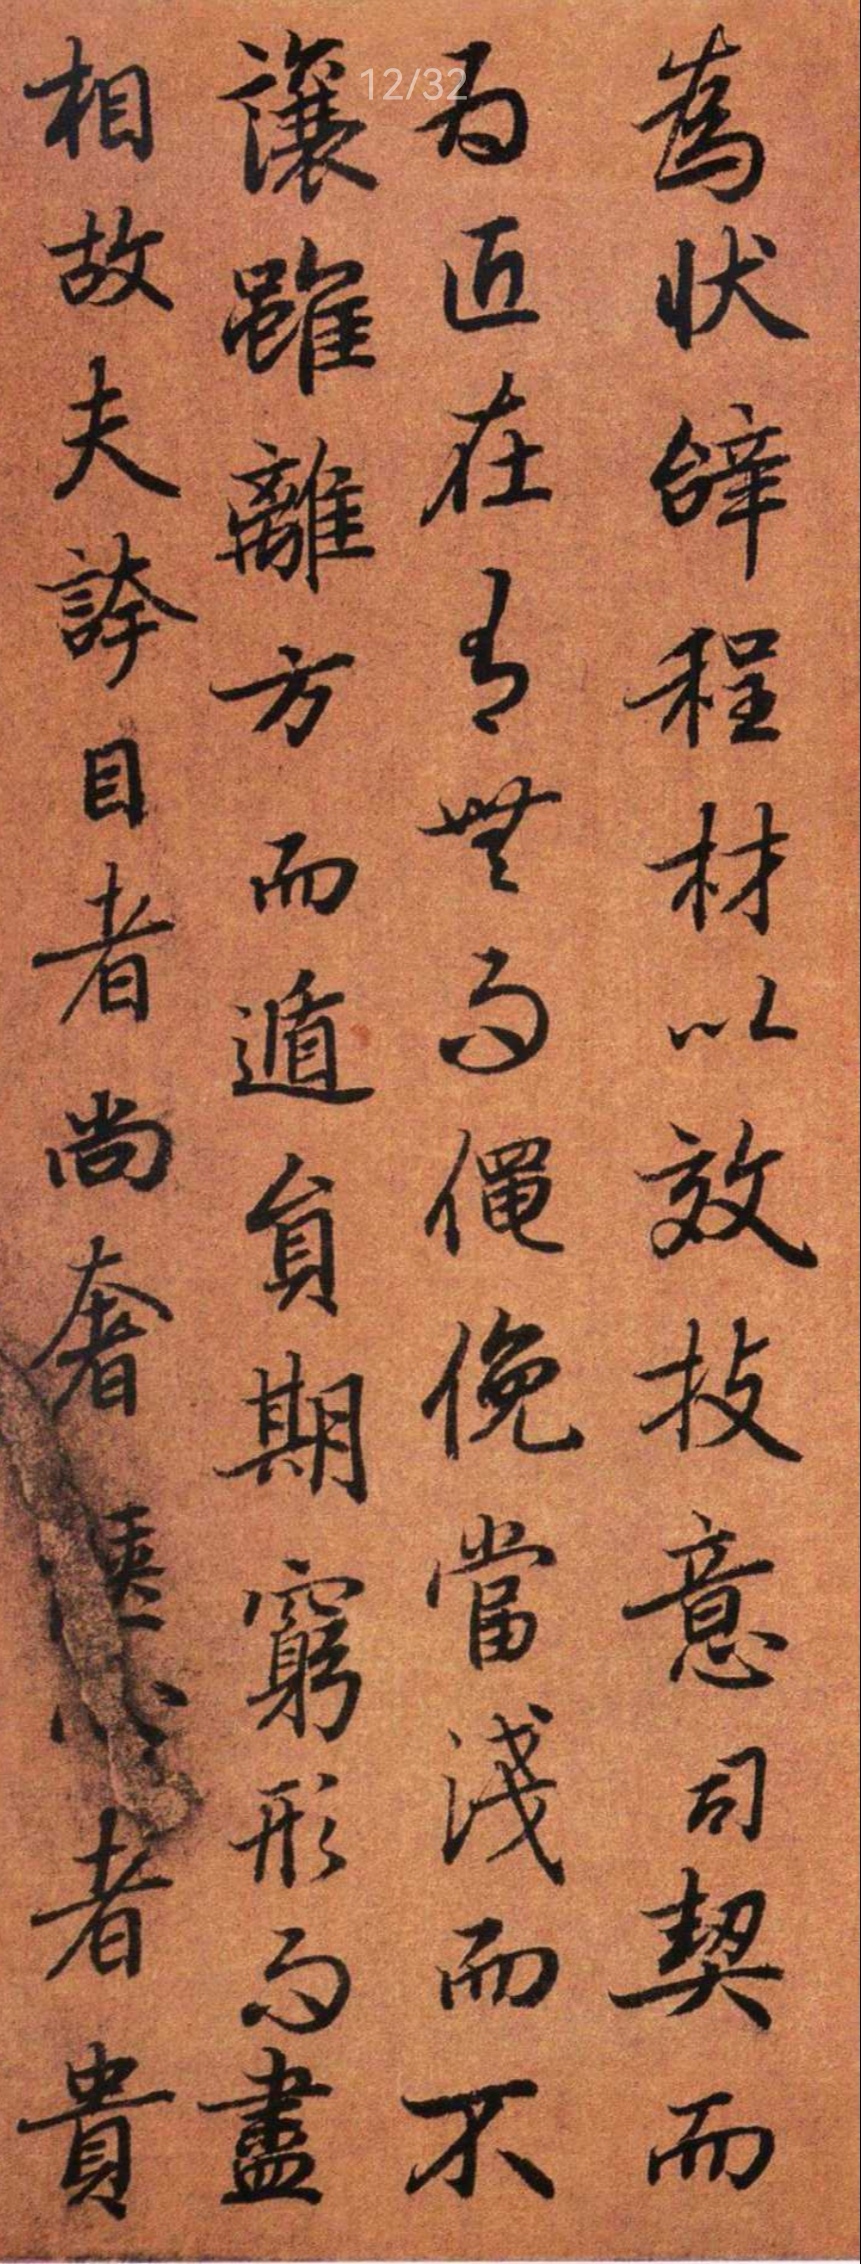 12/32
為狀辝程材以效技意司契而
為匠在有無而僶俛當淺而不
讓雖離方而遁員期窮形而盡
相故夫誇目者尚奢愜心者貴